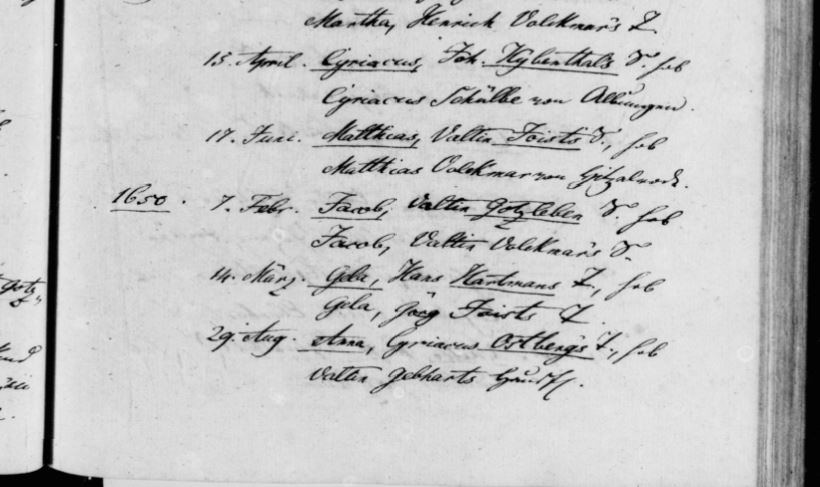 Martha, Henrich Volckmar's T.
15. April. Cyriacus, Joh. Hybenthal's S. hob
Cyriacus Schülbe von Albungen.
17. Juni. Matthias, Valtin Joists S., hob
Matthias Volckmar von Hitzelrode.
1650. 7. Febr. Jacob, Valtin Gotzleben S. hob
Jacob, Valtin Volckmar's S.
14. März. Gela, Hans Hartmans T., hob
Gela, Jörg Joists T.
29. Aug. Anna, Cyriacus Ostberg's T., hob
Valtin Gebharts Hausfr.